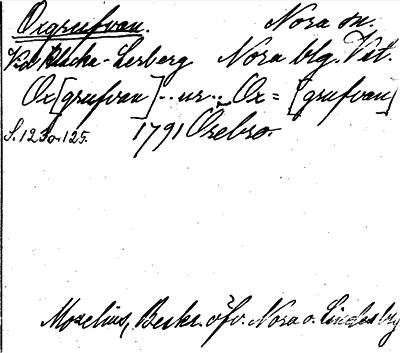 Oxgrufvan. Nora sn.
Vid Blacka-Lerberg Nora blg. Vst.
Ox[grufvan] .. ur .. Ox = [grufvan]
S. 123 o. 125. 1791 Örebro.
Mozelius, Beskr. öfv. Nora o. Lindes blg